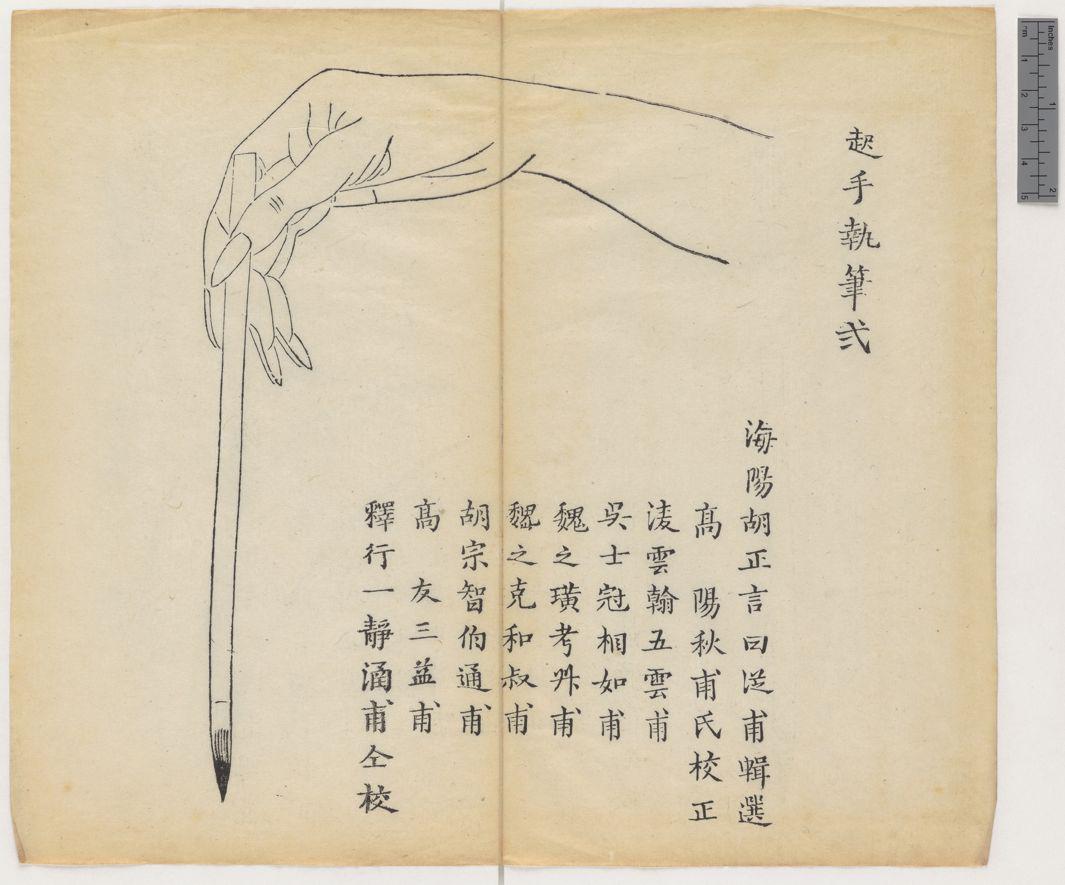 起手執筆弍
海陽胡正言曰從甫輯選
高 陽秋甫氏校正
淩雲翰五雲甫
吳士冠相如甫
魏之璜考叔甫
魏之克和叔甫
胡宗智伯通甫
高 友三益甫
釋行一靜涵甫仝校
Inches
1
2
cm
1
2
3
4
5